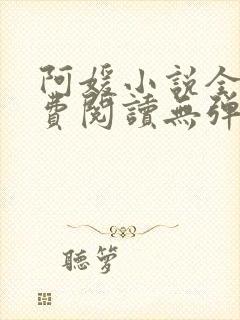 阿媛小說全
費閱讀無彈
聽夢